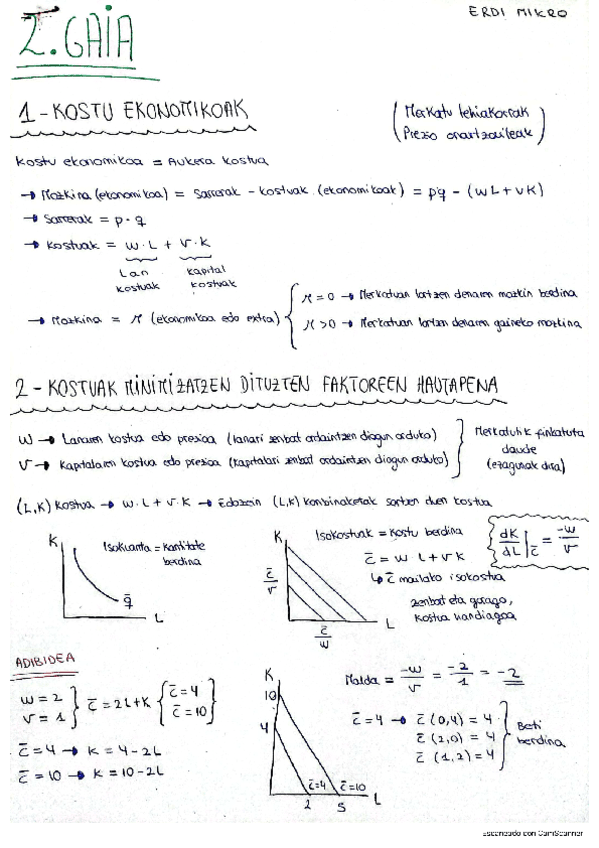 ERDI MIKRO
2. GAIA
1 - KOSTU EKONOMIKOAK
(Merkatu lehiakorrak
Prezio onartzaileak)
Kostu ekonomikoa = Aukera kostua
→ Mozkina (ekonomikoa) = Sarrerak - kostuak (ekonomikoak) = p·q - (wL + vK)
→ Sarrerak = p · q
→ Kostuak = w·L + v·K
Lan kostuak
kapital kostuak
→ Mozkina = π (ekonomikoa edo extra)
π = 0 → Merkatuan lortzen denaren mozkin berdina
π > 0 → Merkatuan lortzen denaren gaineko mozkina
2 - KOSTUAK MINIMIZATZEN DITUZTEN FAKTOREEN HAUTAPENA
w → Lanaren kostua edo prezioa (lanari zenbat ordaintzen diogun orduko)
v → Kapitalaren kostua edo prezioa (kapitalari zenbat ordaintzen diogun orduko)
Merkatuk finkatuta
daude
(ezagunak dira)
(L,K) kostua → w·L + v·K → Edozein (L,K) konbinaketak sortzen duen kostua
K
Isokuanta = kantitate
berdina
q̄
L
K
c̄/v
c̄/w
L
Isokostuak = kostu berdina
c̄ = w·L + v·K
↳ c̄ mailako isokostua
zenbat eta gorago,
kostua handiagoa
dK/dL |c̄ = -w/v
ADIBIDEA
w = 2
v = 1
c̄ = 2L + K
c̄ = 4
c̄ = 10
c̄ = 4 → K = 4 - 2L
c̄ = 10 → K = 10 - 2L
K
10
4
c̄=4
c̄=10
2
5
L
Malda = -w/v = -2/1 = -2
c̄ = 4 → c̄ (0,4) = 4
c̄ (2,0) = 4
c̄ (1,2) = 4
Beti
berdina
Escaneado con CamScanner